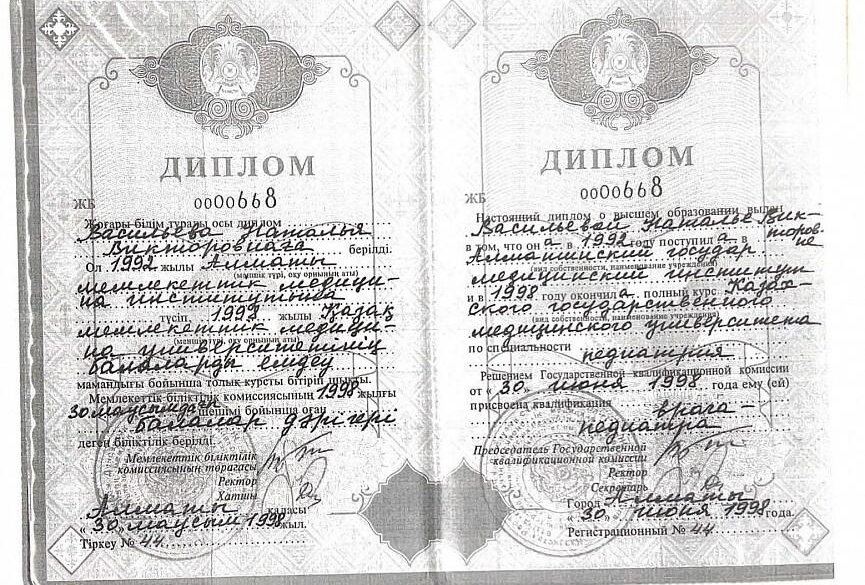 ДИПЛОМ
ЖБ 0000668
Жоғары білім туралы осы диплом
Васильева Наталья
Викторовнаға берілді.
Ол 1992 жылы Алматы
(меншік түрі, оқу орнының аты)
мемлекеттік медици-
на институтына
түсіп, 1998 жылы Қазақ
мемлекеттік медици-
(меншік түрі, оқу орнының аты)
на университетінің
балаларды емдеу
мамандығы бойынша толық курсты бітіріп шықты.
Мемлекеттік біліктілік комиссиясының 1998 жылғы
30 маусымдағы шешімі бойынша оған
балалар дәрігері
деген біліктілік берілді.
Мемлекеттік біліктілік
комиссиясының төрағасы
Ректор
Хатшы
Алматы қаласы
« 30 » маусым 1998 жыл.
Тіркеу № 44
ДИПЛОМ
ЖБ 0000668
Настоящий диплом о высшем образовании выдан
Васильевой Наталье Вик-
торовне
в том, что он а в 1992 году поступил а в
Алматинский государ
(вид собственности, наименование учреждения)
медицинский институт
и в 1998 году окончил а полный курс Казах-
ского государственного
(вид собственности, наименование учреждения)
медицинского университета
по специальности
педиатрия
Решением Государственной квалификационной комиссии
от « 30 » июня 1998 года ему (ей)
присвоена квалификация
врача-
педиатра
Председатель Государственной
квалификационной комиссии
Ректор
Секретарь
Город Алматы
« 30 » июня 1998 года.
Регистрационный № 44